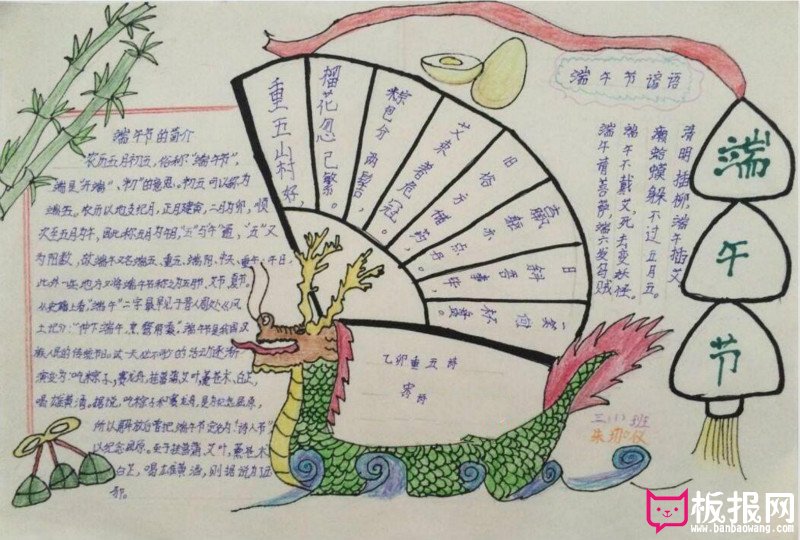 端午节的简介
农历五月初五，俗称"端午节"，
端是"开端"、"初"的意思。初五可以称为
端五。农历以地支纪月，正月建寅，二月为卯，顺
次至五月为午，因此称五月为午月，"五"与"午"通，"五"又
为阳数，故端午又名端五、重五、端阳、中天、重午、午日，
此外一些地方又将端午节称之为五月节、艾节、夏节。
从史籍上看，"端午"二字最早见于晋人周处《风
土记》："仲下端午，烹鹜用
端午节是我国汉
族人民的传统节日。这一天必不可少的活动逐渐
演变为：吃粽子，赛龙舟，挂菖蒲、艾叶，薰苍术、白芷，
喝雄黄酒。据说，吃粽子和赛龙舟，是为纪念屈原，
所以解放后曾把端午节定名为"诗人节"
以纪念屈原。至于挂菖蒲、艾叶，薰苍术
白芷，喝雄黄酒，则据说为了
重五山村好，
榴花忽已繁。
粽包分两髻，
艾束著危冠。
旧俗方储药，
羸躯亦点丹。
日斜吾事毕，
一笑向杯盘。
乙卯重五诗
端午节谚语
清明插柳，端午插艾
癞蛤蟆躲不过五月五。
端午不戴艾，死去变妖怪。
端
午
节
三(1)班
板报网
www.banbaowang.com